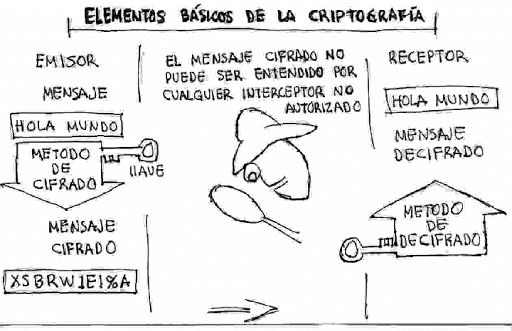 ELEMENTOS BÁSICOS DE LA CRIPTOGRAFÍA
EMISOR
MENSAJE
HOLA MUNDO
METODO
DE
CIFRADO
LLAVE
MENSAJE
CIFRADO
XSBRW1E1%A
EL MENSAJE CIFRADO NO
PUEDE SER ENTENDIDO POR
CUALQUIER INTERCEPTOR NO
AUTORIZADO
RECEPTOR
HOLA MUNDO
MENSAJE
DECIFRADO
METODO
DE
DECIFRADO